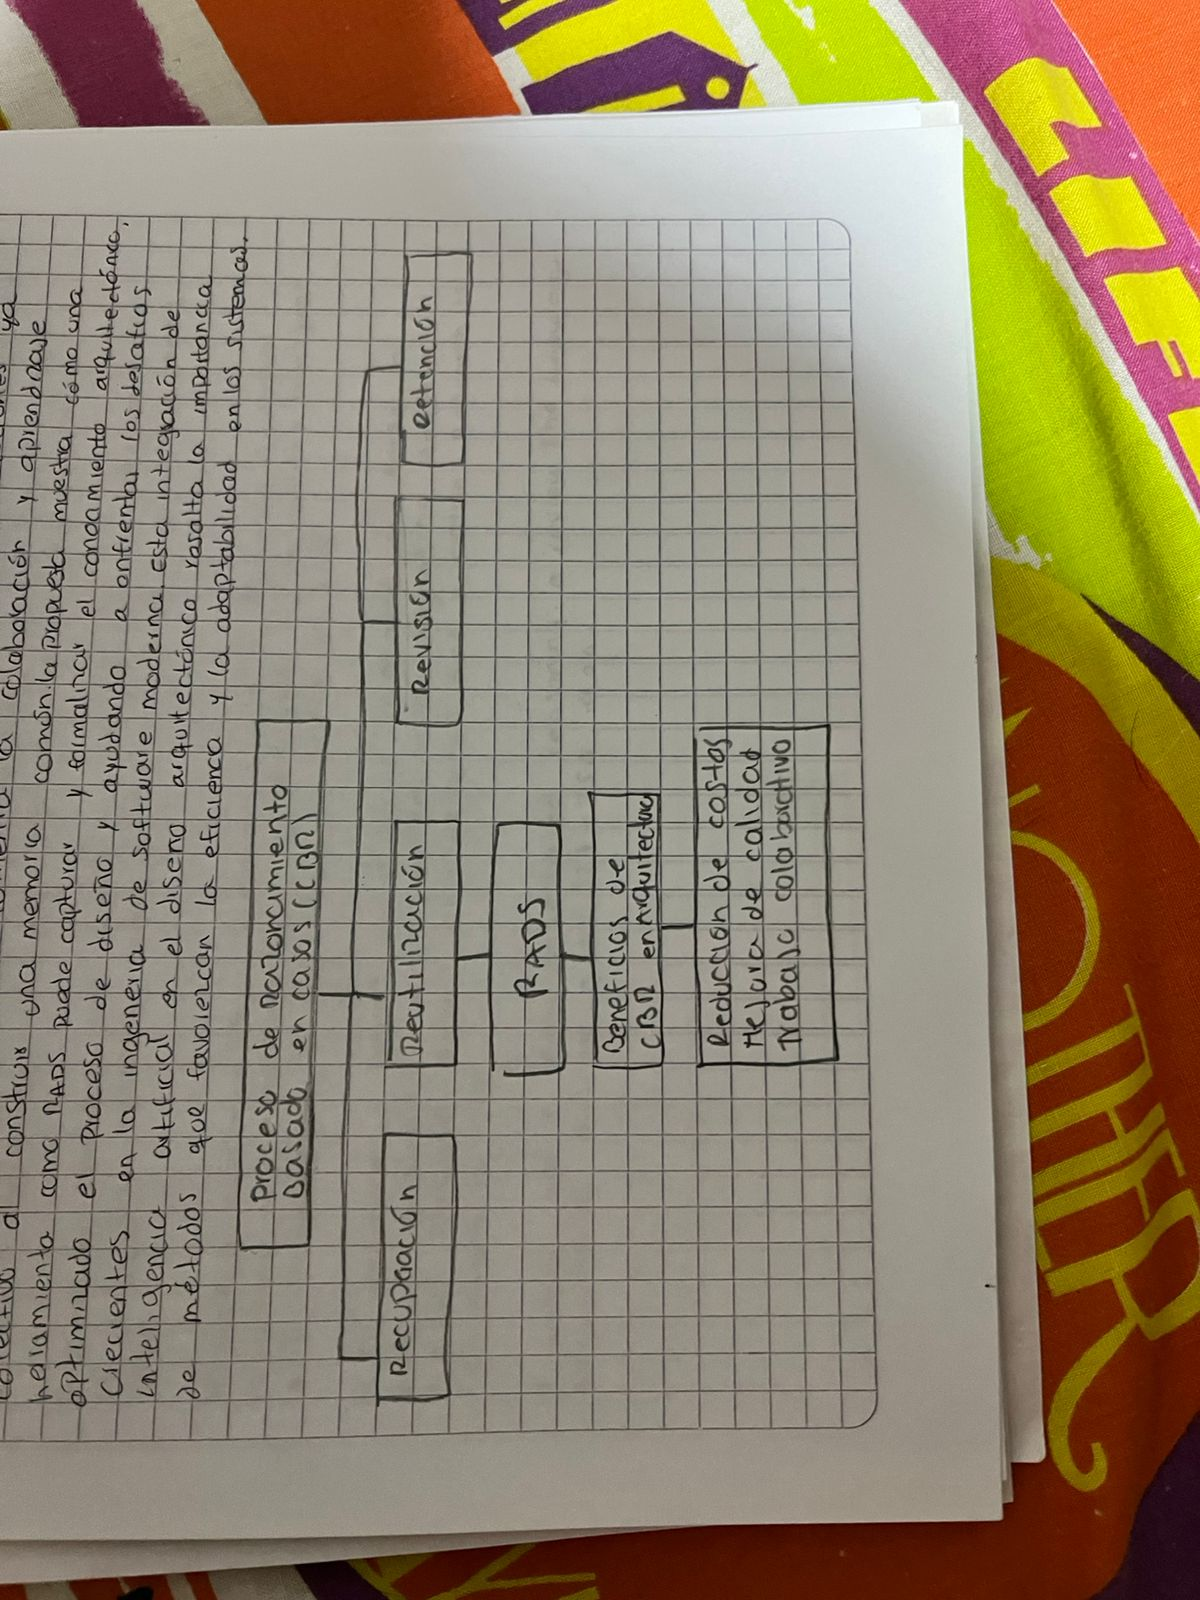 colaboración y aprendizaje
colectivo al construir una memoria común. la propuesta muestra cómo una
herramienta como RADS puede capturar y formalizar el conocimiento arquitectónico,
optimizado el proceso de diseño y ayudando a enfrentar los desafíos
crecientes en la ingenieria de software moderna. esta integración de
inteligencia artificial en el diseño arquitectónico resalta la importancia
de métodos que favorezcan la eficiencia y la adaptabilidad en los sistemas.
Proceso de razonamiento
basado en casos (CBR)
Recuperación
Reutilización
Revisión
Retención
RADS
Beneficios de
CBR en Arquitectura
Reducción de costos
Mejora de calidad
Trabajo colaborativo
OTHER